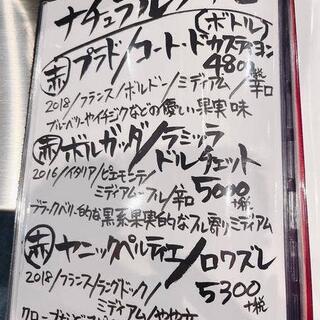 ナチュラルワイン
(ボトル)
赤 プラド/コート・ド カスティヨン
4800 +税
2018/フランス/ボルドー/ミディアム/辛口
ブルーベリーやイチジクなどの優しい果実味
赤 ボルガッタ/ラミッラ
ドルチェット
2016/イタリア/ピエモンテ/
ミディアム〜フル/辛口 5000 +税
ブラックベリー的な黒系果実的なフル寄りミディアム
赤 ヤニックペルティエ/ロワズレ
2018/フランス/ラングドック/ 5300 +税
ミディアム/やや辛
クローブなど